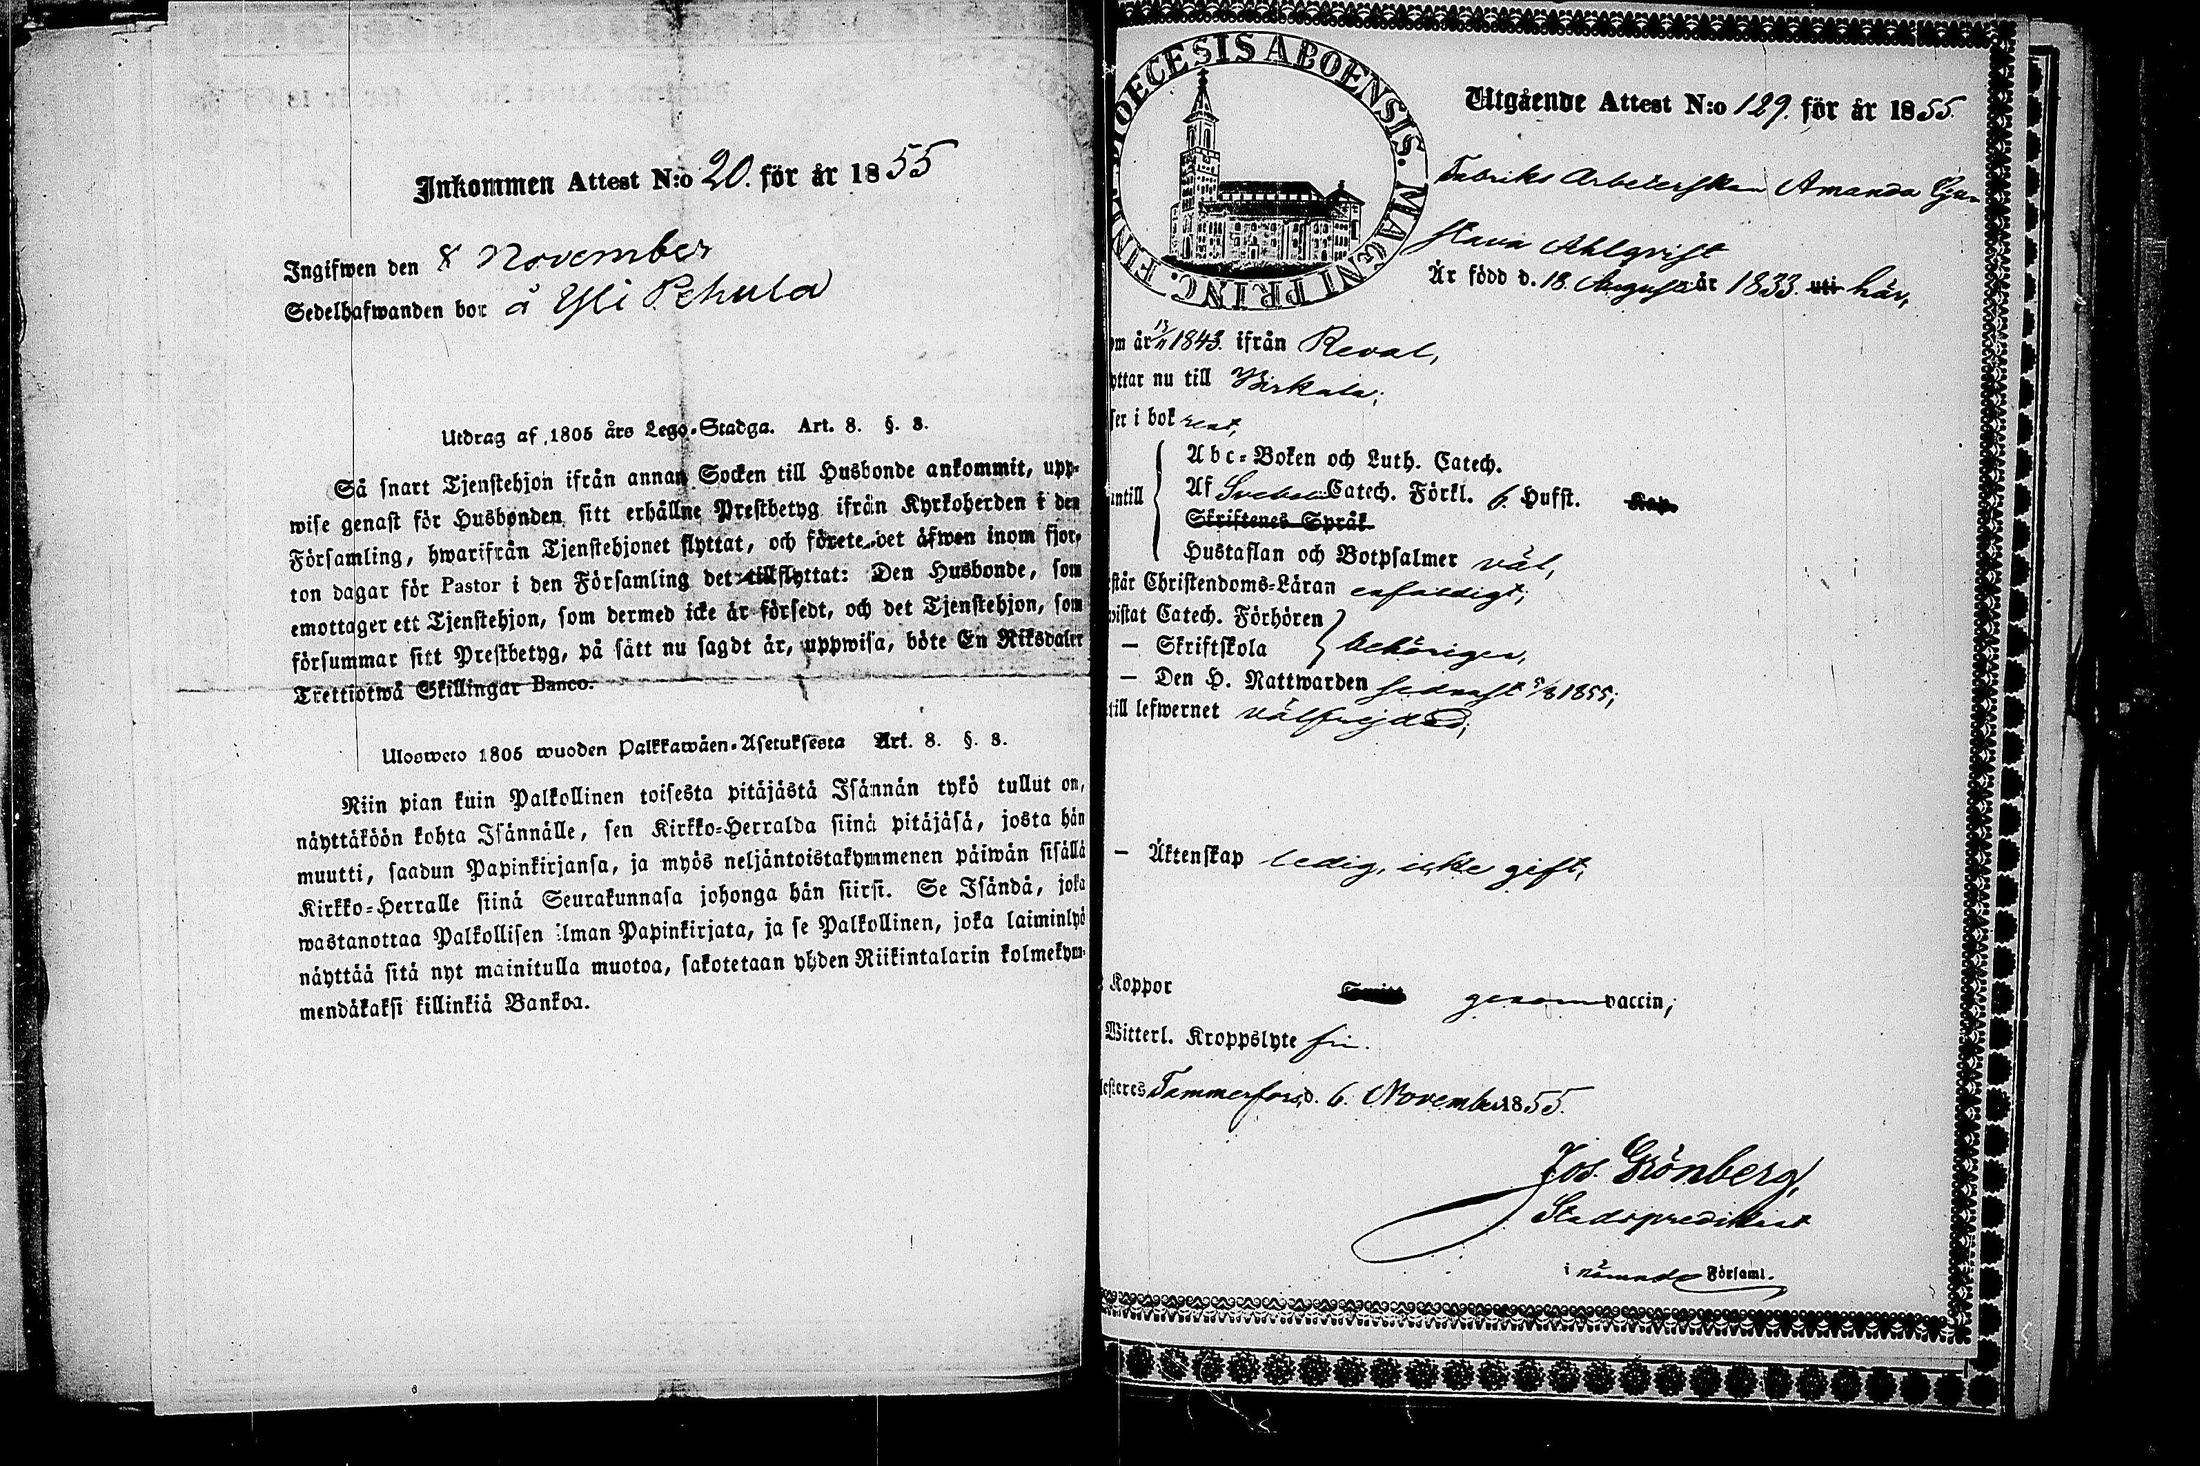 Inkommen Attest N:o 20. för år 1855
Ingifwen den 8 November
Sedelhafwanden bor å Yli Pehula
Utdrag af 1805 års Lego-Stadga. Art. 8. §. 8.
Så snart Tjenstehjon ifrån annan Socken till Husbonde ankommit, upp-
wise genast för Husbonden sitt erhållne Prestbetyg ifrån Kyrkoherden i den
Församling, hwarifrån Tjenstehjonet flyttat, och förete det äfwen inom fjor-
ton dagar för Pastor i den Församling det tillflyttat: Den Husbonde, som
emottager ett Tjenstehjon, som dermed icke är försedt, och det Tjenstehjon, som
försummar sitt Prestbetyg, på sätt nu sagdt är, uppwisa, böte En Riksdaler
Trettiotwå Skillingar Banco.
Ulosweto 1805 wuoden Palkkawäen-Asetuksesta Art. 8. §. 8.
Niin pian kuin Palkollinen toisesta pitäjästä Isännän tykö tullut on,
näyttäköön kohta Isännälle, sen Kirkko-Herralda siinä pitäjäsä, josta hän
muutti, saadun Papinkirjansa, ja myös neljäntoistakymmenen päiwän sisällä
Kirkko-Herralle siinä Seurakunnasa johonga hän siirsi. Se Isändä, joka
wastanottaa Palkollisen ilman Papinkirjata, ja se Palkollinen, joka laiminlyö
näyttää sitä nyt mainitulla muotoa, sakotetaan yhden Riikintalarin kolmekym-
mendäkaksi killinkiä Bankoa.
DIOECESIS ABOENSIS. MAGNI PRINC. FINL.
Utgående Attest N:o 129. för år 1855.
Fabriks Arbeterskan Amanda Gu-
stava Ahlqvist
Är född d. 18. Augusti år 1833. uti här,
om år 13/11 1843. ifrån Reval,
yttar nu till Birkala;
ser i bok rent,
Abc-Boken och Luth. Catech.
untill Af Svebelii Catech. Förkl. 6. Hufst. Kap.
Skriftenes Språk
Hustaflan och Botpsalmer väl,
står Christendoms-Läran enfaldigt;
vistat Catech. Förhören
— Skriftskola behörigen,
— Den H. Nattwarden sednast 5/8 1855;
till lefwernet välfrejdad;
— Äktenskap ledig, icke gift;
Koppor genom vaccin;
Witterl. Kroppslyte fri.
esteres Tammerfors, d. 6. November 1855.
Jos. Grönberg,
Stadspredikant
i nämnde Församl.